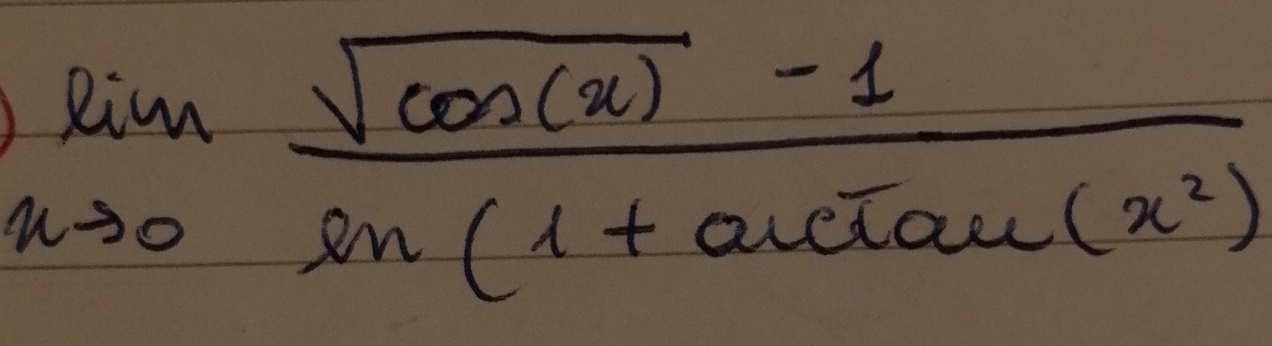 ) lim √cos(x) - 1
x→0 ln(1 + arctan(x²)